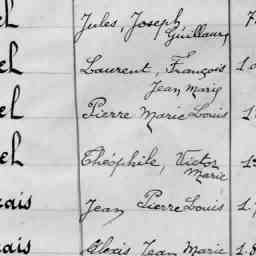 el Jules, Joseph 7
Guillaume
el Laurent, François 1.
Jean Marie
el Pierre Marie Louis 1
el Théophile, Victor 1
Marie
ais Jean Pierre Louis 1.
ais Alexis Jean Marie 1.8